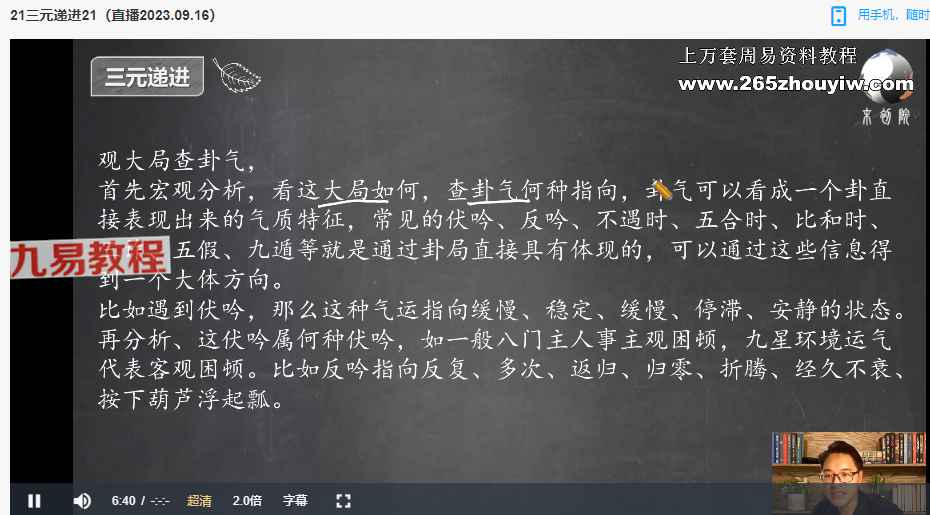 21三元递进21（直播2023.09.16）
用手机，随时
三元递进
上万套周易资料教程
www.265zhouyiw.com
观大局查卦气，
首先宏观分析，看这大局如何，查卦气何种指向，卦气可以看成一个卦直
接表现出来的气质特征，常见的伏吟、反吟、不遇时、五合时、比和时、
五假、九遁等就是通过卦局直接具有体现的，可以通过这些信息得
九易教程
到一个大体方向。
比如遇到伏吟，那么这种气运指向缓慢、稳定、缓慢、停滞、安静的状态。
再分析、这伏吟属何种伏吟，如一般八门主人事主观困顿，九星环境运气
代表客观困顿。比如反吟指向反复、多次、返归、归零、折腾、经久不衰、
按下葫芦浮起瓢。
6:40 / -:-:- 超清 2.0倍 字幕